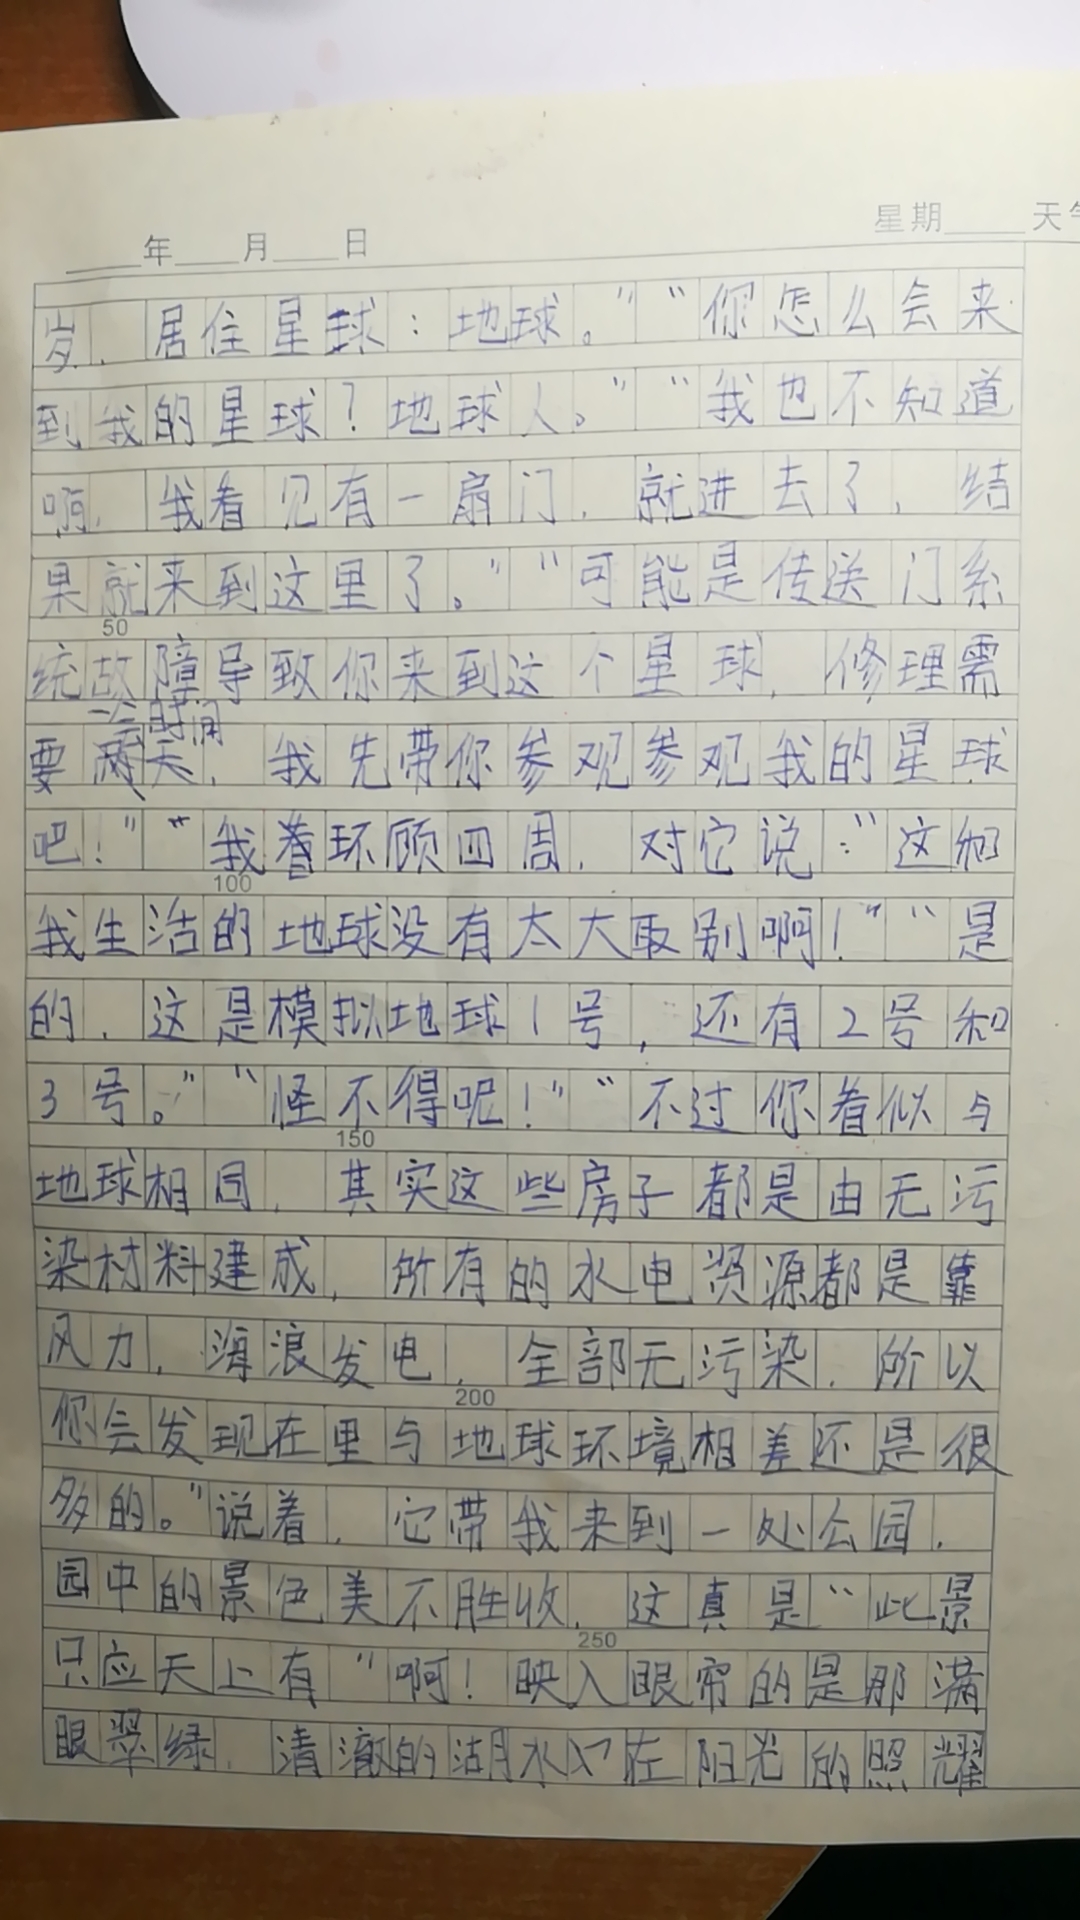 年 月 日
星期 天气
岁，居住星球：地球。”“你怎么会来
到我的星球？地球人。”“我也不知道
啊，我看见有一扇门，就进去了，结
果就来到这里了。”“可能是传送门系
50
统故障导致你来到这个星球，修理需
一会时间
要两天，我先带你参观参观我的星球
吧！”“我着环顾四周，对它说：“这和
100
我生活的地球没有太大取别啊！”“是
的，这是模拟地球1号，还有2号和
3号。”“怪不得呢！”“不过你着似与
150
地球相同，其实这些房子都是由无污
染材料建成，所有的水电资源都是靠
风力，海浪发电，全部无污染，所以
200
你会发现在里与地球环境相差还是很
多的。”说着，它带我来到一处公园，
园中的景色美不胜收，这真是“此景
250
只应天上有”啊！映入眼帘的是那满
眼翠绿，清澈的湖水在阳光的照耀